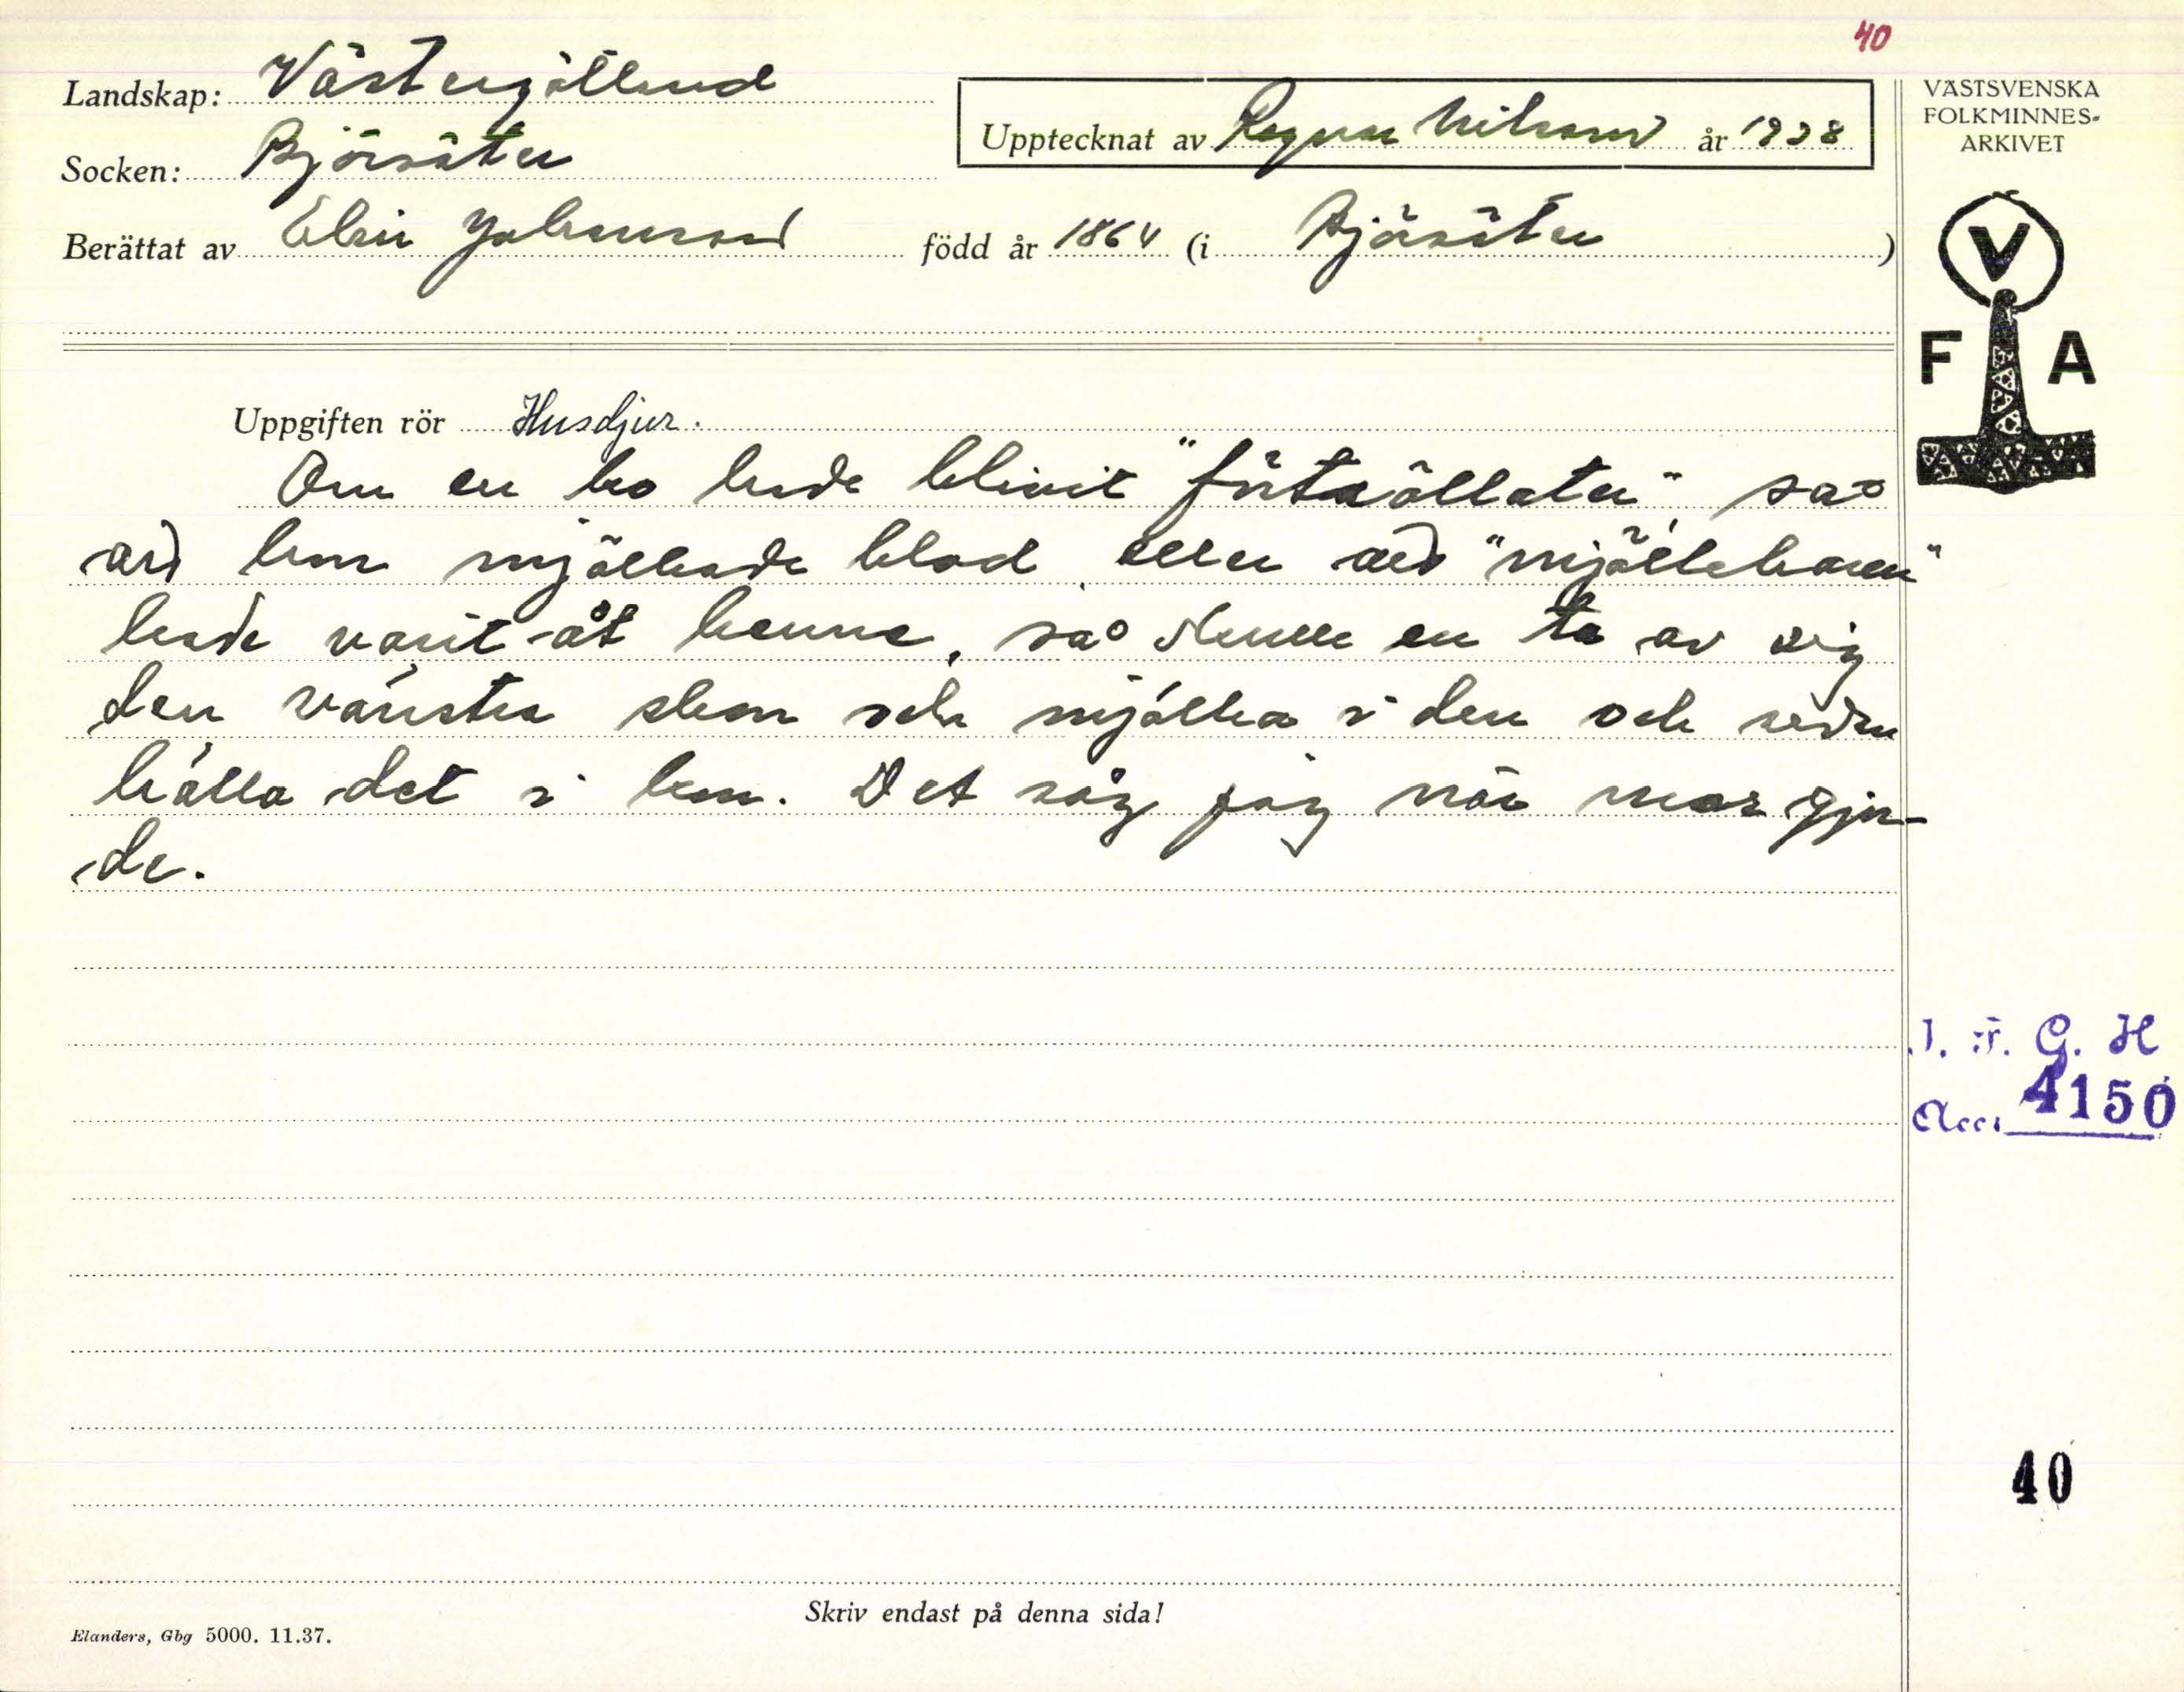 40
Landskap: Västergötland
Upptecknat av Ragnar Nilsson år 1938
VÄSTSVENSKA
FOLKMINNES-
ARKIVET
Socken: Björsäter
Berättat av Elin Johansson född år 1864 (i Björsäter)
V
F A
Uppgiften rör Husdjur.
Om en ko hade blivit "förtrollater" så
att hon mjölkade blod eller att "mjölkharen"
hade varit åt henne, så skulle en ta av sig
den vänstra skon och mjölka i den och sedan
hälla det i hon. Det såg jag när mor gjor-
de.
I. F. G. H
Acc. 4150
40
Skriv endast på denna sida!
Elanders, Gbg 5000. 11.37.